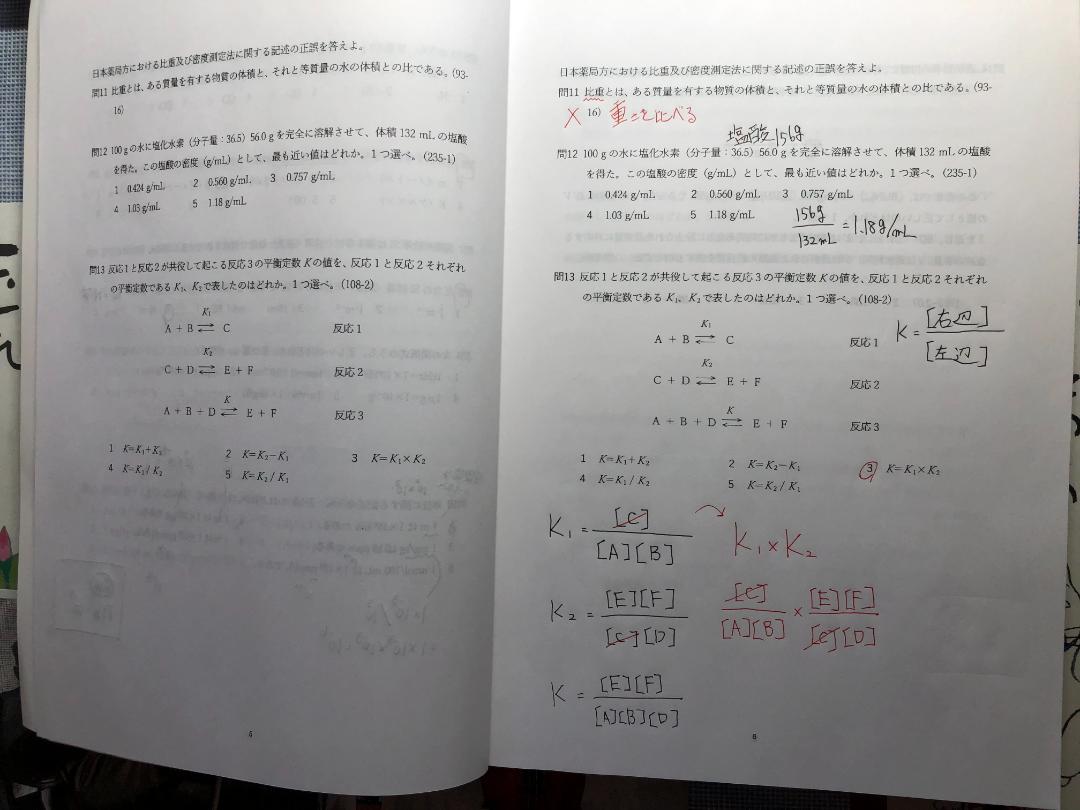 日本薬局方における比重及び密度測定法に関する記述の正誤を答えよ。
問11 比重とは、ある質量を有する物質の体積と、それと等質量の水の体積との比である。(93-
16)
問12 100 gの水に塩化水素（分子量：36.5）56.0 gを完全に溶解させて、体積 132 mLの塩酸
を得た。この塩酸の密度（g/mL）として、最も近い値はどれか。1つ選べ。(235-1)
1 0.424 g/mL 2 0.560 g/mL 3 0.757 g/mL
4 1.03 g/mL 5 1.18 g/mL
問13 反応1と反応2が共役して起こる反応3の平衡定数Kの値を、反応1と反応2それぞれ
の平衡定数であるK₁、K₂で表したのはどれか。1つ選べ。(108-2)
K₁
A + B ⇄ C 反応1
K₂
C + D ⇄ E + F 反応2
K
A + B + D ⇄ E + F 反応3
1 K=K₁+K₂ 2 K=K₂−K₁ 3 K=K₁×K₂
4 K=K₁/K₂ 5 K=K₂/K₁
6
日本薬局方における比重及び密度測定法に関する記述の正誤を答えよ。
問11 比重とは、ある質量を有する物質の体積と、それと等質量の水の体積との比である。(93-
× 16) 重さを比べる
塩酸156g
問12 100 gの水に塩化水素（分子量：36.5）56.0 gを完全に溶解させて、体積 132 mLの塩酸
を得た。この塩酸の密度（g/mL）として、最も近い値はどれか。1つ選べ。(235-1)
1 0.424 g/mL 2 0.560 g/mL 3 0.757 g/mL
4 1.03 g/mL 5 1.18 g/mL
156g
132mL
=1.18g/mL
問13 反応1と反応2が共役して起こる反応3の平衡定数Kの値を、反応1と反応2それぞれ
の平衡定数であるK₁、K₂で表したのはどれか。1つ選べ。(108-2)
K₁
A + B ⇄ C 反応1
K= [右辺]
[左辺]
K₂
C + D ⇄ E + F 反応2
K
A + B + D ⇄ E + F 反応3
1 K=K₁+K₂ 2 K=K₂−K₁ 3 K=K₁×K₂
4 K=K₁/K₂ 5 K=K₂/K₁
K₁ = [C]
[A][B]
K₁×K₂
K₂ = [E][F]
[C][D]
[C] × [E][F]
[A][B] [C][D]
K = [E][F]
[A][B][D]
6